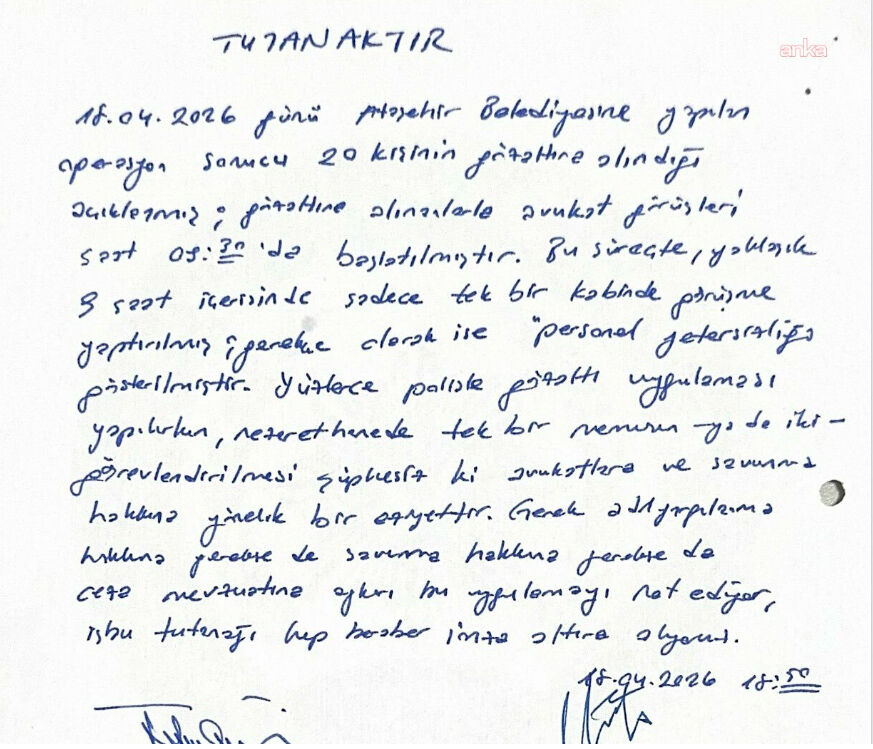 TUTANAKTIR
anka
18.04.2026 günü Ataşehir Belediyesine yapılan
operasyon sonucu 20 kişinin gözaltına alındığı
açıklanmış; gözaltına alınanlarla avukat görüşleri
saat 09:30 'da başlatılmıştır. Bu süreçte, yaklaşık
9 saat içerisinde sadece tek bir kabinde görüşme
yaptırılmış; gerekçe olarak ise "personel yetersizliği
gösterilmiştir. Yüzlerce polisle gözaltı uygulaması
yapılırken, nezarethanede tek bir memurun -ya da iki-
görevlendirilmesi şüphesiz ki avukatlara ve savunma
hakkına yönelik bir eziyettir. Gerek adil yargılanma
hakkına gerekse de savunma hakkına gerekse de
ceza mevzuatına aykırı bu uygulamayı not ediyor,
işbu tutanağı hep beraber imza altına alıyoruz.
18.04.2026 18:50